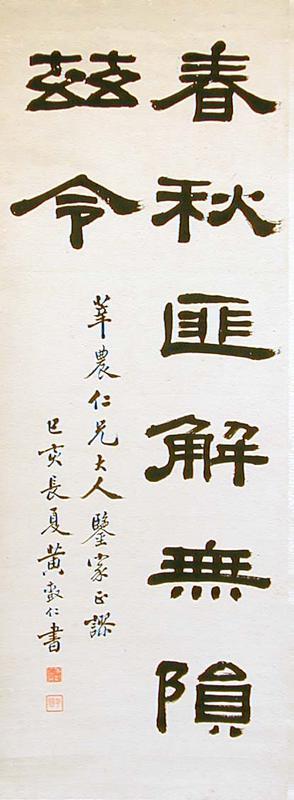 春秋匪解無隕
茲令
莘農仁兄大人鑒家正謬
己亥長夏黃仁書